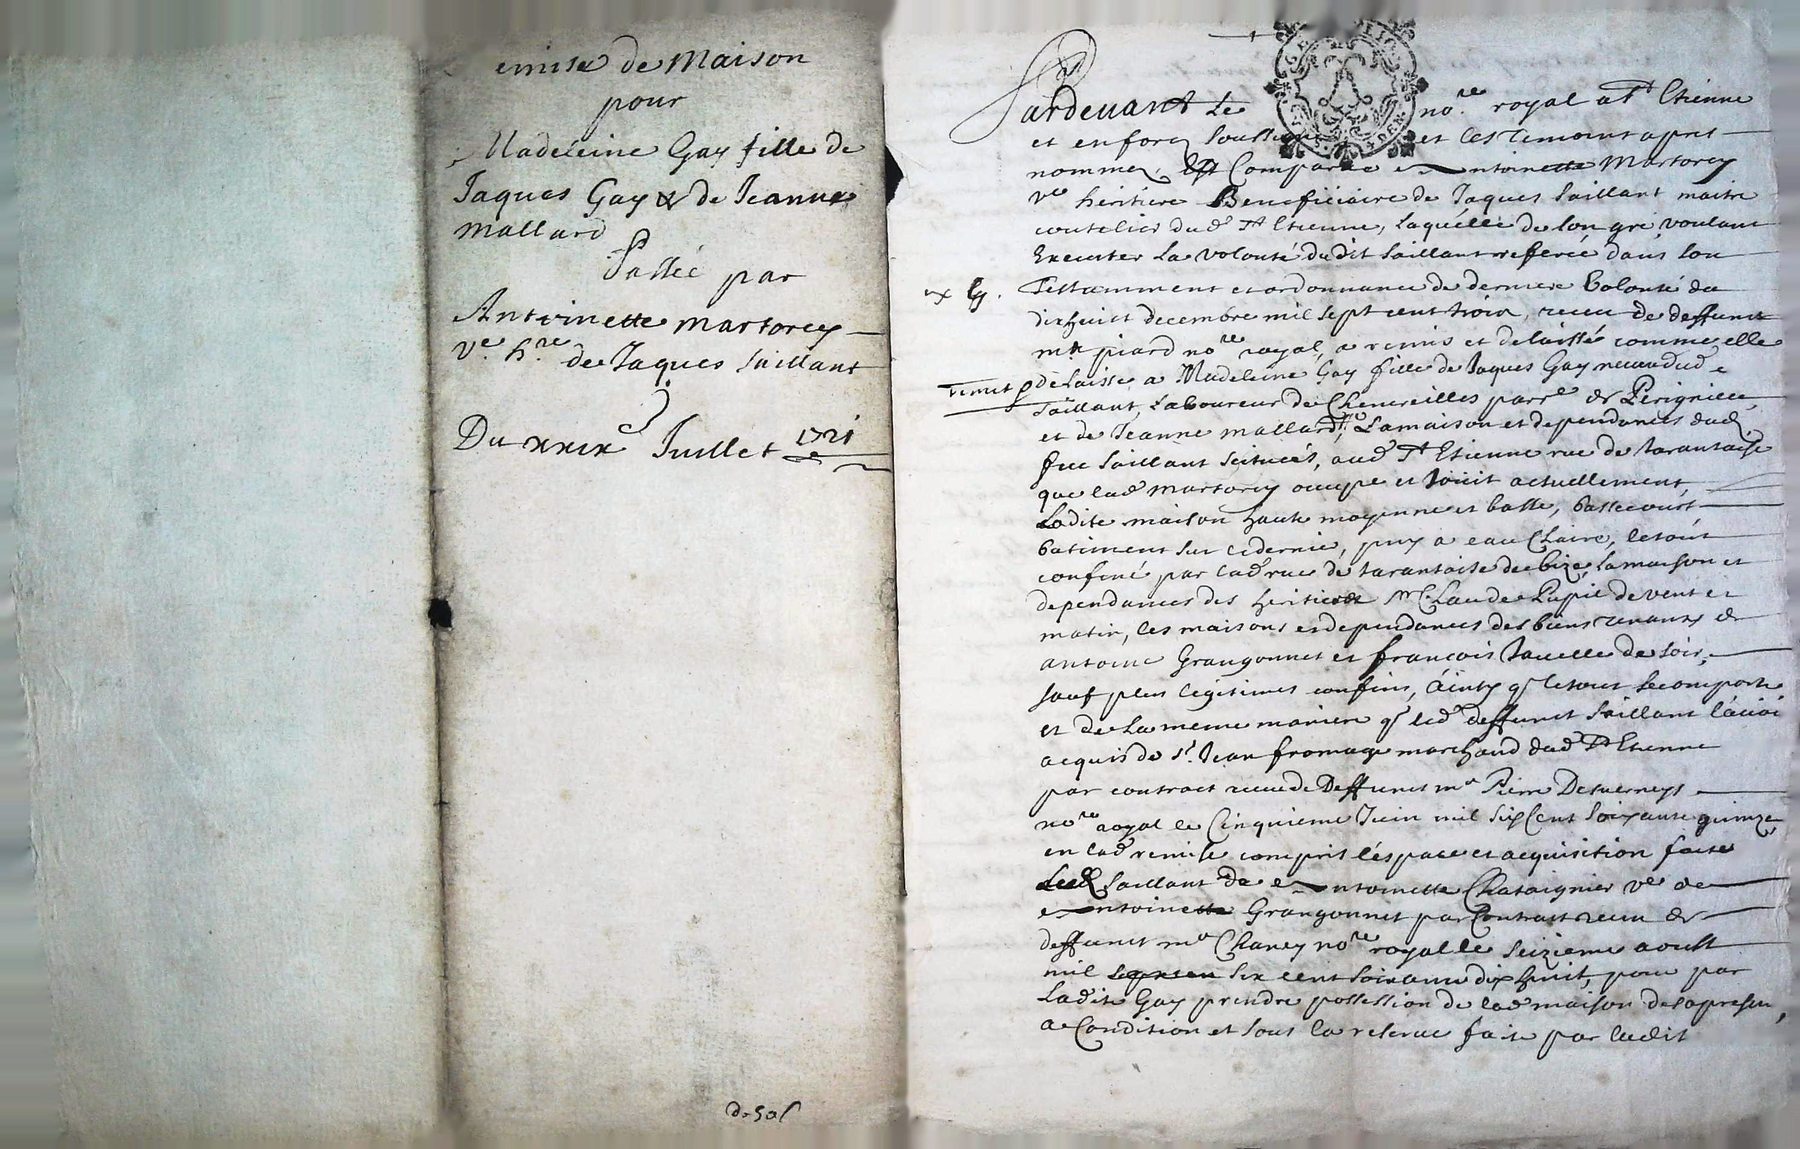 emise de Maison
pour
Madeleine Gay fille de
Jaques Gay & de Jeanne
Mallard
Passée par
Antoinette Martorey
ve. h.re de Jaques Saillant
Du xxix Juillet 1721
Pardevant le no.re royal a St Etienne
et en forez soussigné et les temoins apres
nommez, Est Comparue Antoinette Martorey
ve heritiere Beneficiaire de Jaques Saillant maitre
coutelier dud St Etienne, Laquelle de son gré voulant
Executer La volonté dudit Saillant referée dans son
Testamment et ordonnance de derniere Volonté du
dixhuict decembre mil sept cent trois, receu de deffunct
me piard no.re royal, a remis et delaissé comme elle
delaisse a Madeleine Gay fille de Jaques Gay neveu dud
Saillant, Laboureur de Chenereilles parr.e de Perignieu,
et de Jeanne Mallard, La maison et dependances dud
feu Saillant scituées, aud St Etienne rue de tarantaise
que lad Martorey occupe et Jouit actuellement,
Ladite maison haute moyenne et basse, bassecourt
batiment sur idernie, puy a eau Claire, le tout
confiné par lad rue de tarantaise de bize La maison et
dependances des heritiers Mr Claude Papié de vent et
matin, les maisons et dependances des biens tenants de
antoine Grangonnet et françois Javelle de soir,
sauf plus legitimes confins, Ainsy q. le tout se comporte
et de La meme maniere q. led deffunct Saillant l'avoi
acquis de Sr. Jean fromage marchand dud St Etienne
par contract receu de Deffunct me Pierre Desverneys
no.re royal le Cinquieme Juin mil Six Cent Soixante quinze,
en lad remise compris l'espace et acquisition faite
Led Saillant de Antoinette Chataignier ve de
Antoinette Grangonnet par Contract receu de
deffunct me Chaney no.re royal le seizieme aoust
mil six cent soixante dix huit, pour par
Ladite Gay prendre possession de lad maison des a presen,
a Condition et sous la reserve faite par ledit